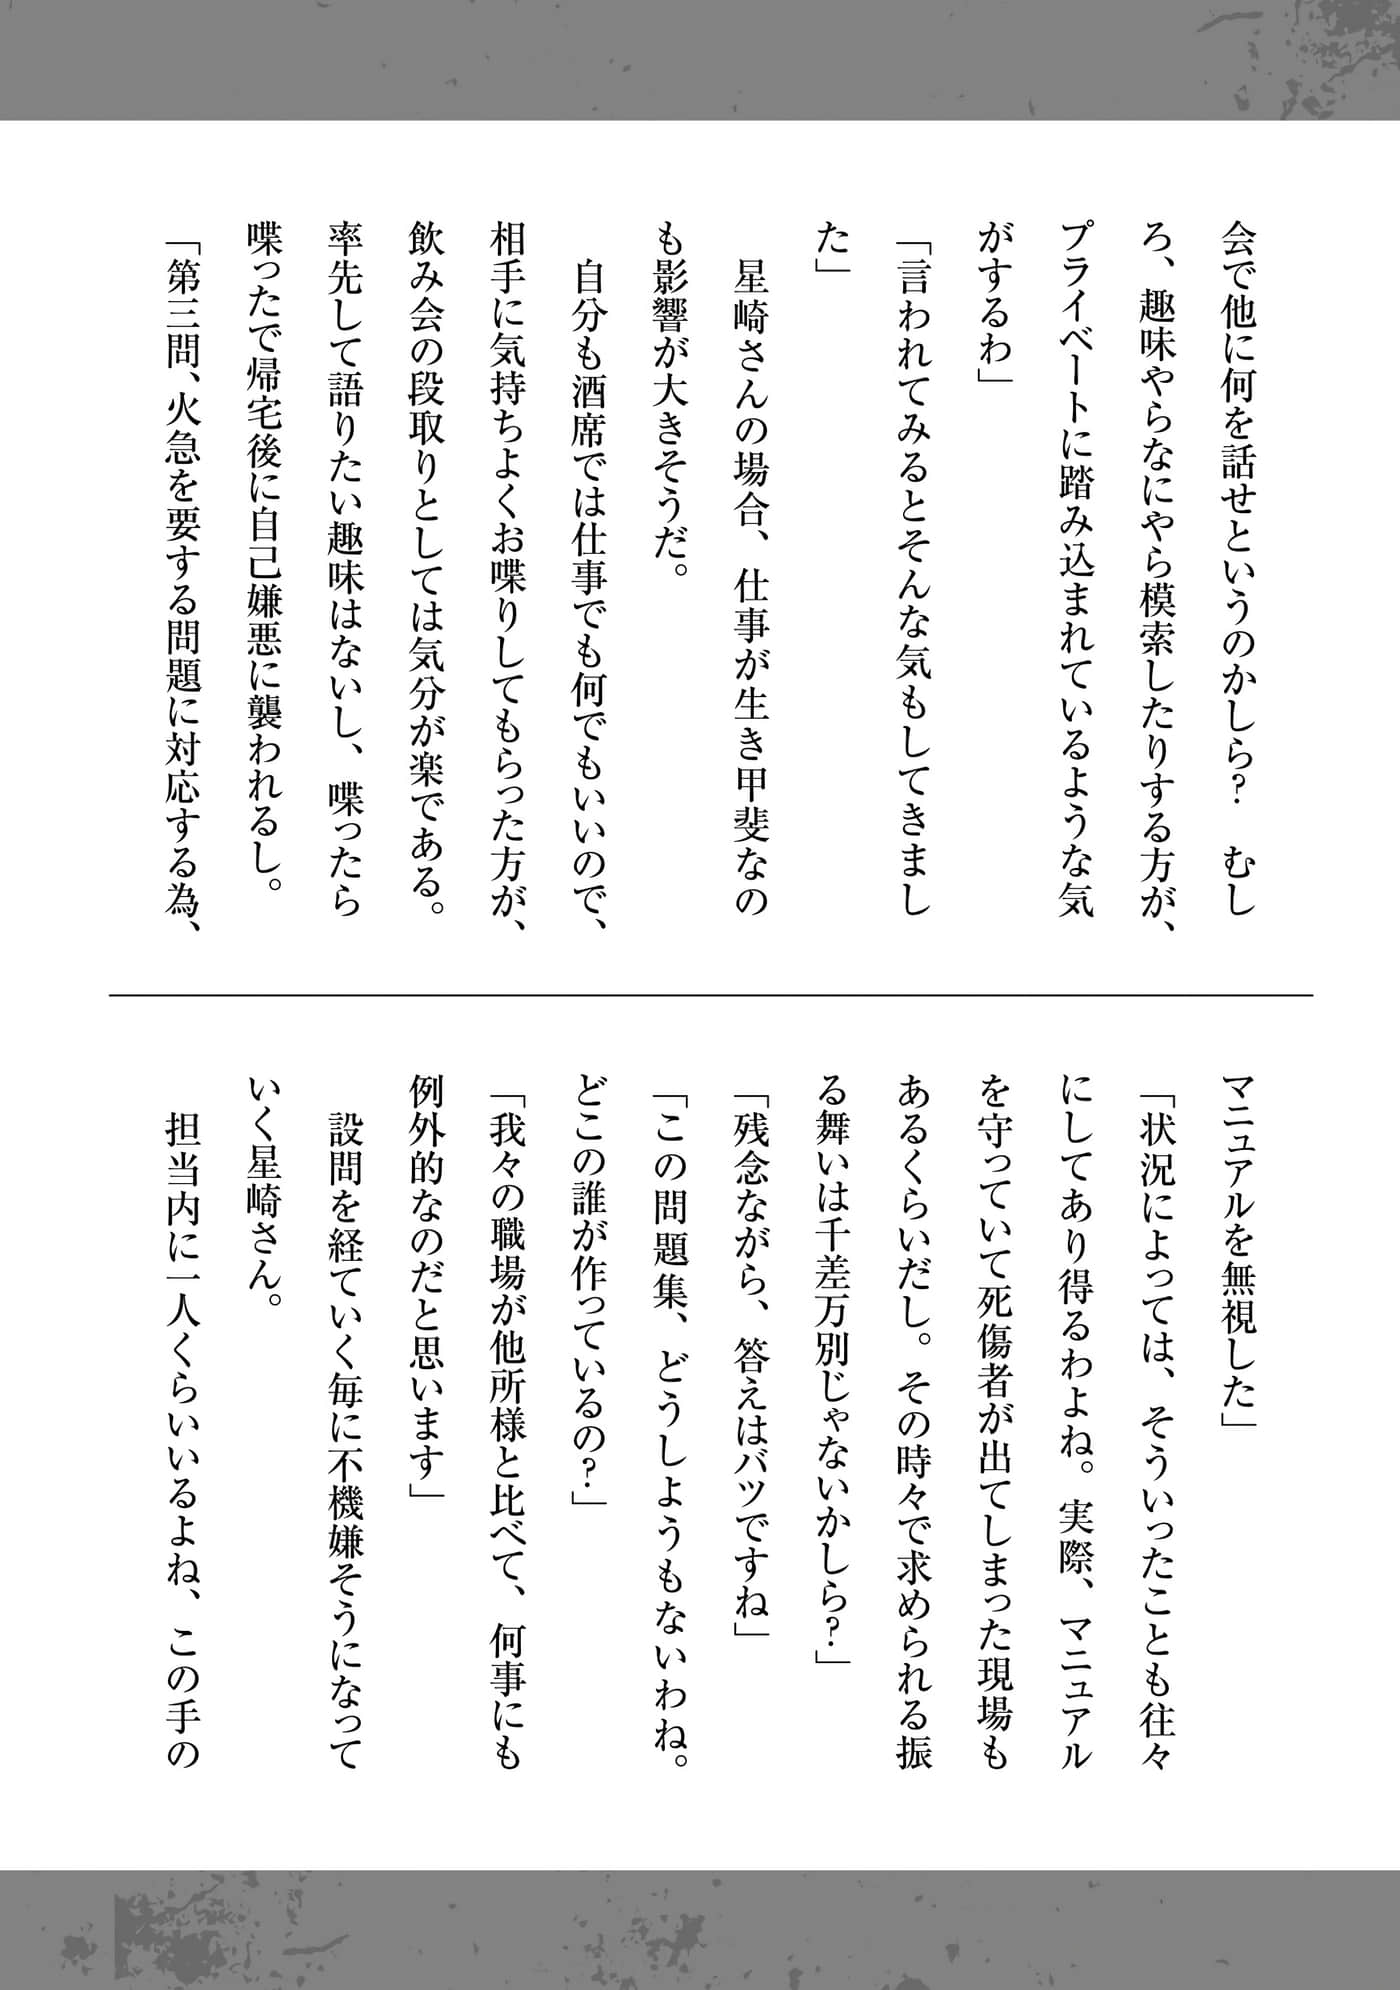 会で他に何を話せというのかしら？　むし
ろ、趣味やらなにやら模索したりする方が、
プライベートに踏み込まれているような気
がするわ」
「言われてみるとそんな気もしてきまし
た」
　星崎さんの場合、仕事が生き甲斐なの
も影響が大きそうだ。
　自分も酒席では仕事でも何でもいいので、
相手に気持ちよくお喋りしてもらった方が、
飲み会の段取りとしては気分が楽である。
率先して語りたい趣味はないし、喋ったら
喋ったで帰宅後に自己嫌悪に襲われるし。
「第三問、火急を要する問題に対応する為、
マニュアルを無視した」
「状況によっては、そういったことも往々
にしてあり得るわよね。実際、マニュアル
を守っていて死傷者が出てしまった現場も
あるくらいだし。その時々で求められる振
る舞いは千差万別じゃないかしら？」
「残念ながら、答えはバツですね」
「この問題集、どうしようもないわね。
どこの誰が作っているの？」
「我々の職場が他所様と比べて、何事にも
例外的なのだと思います」
　設問を経ていく毎に不機嫌そうになって
いく星崎さん。
　担当内に一人くらいいるよね、この手の